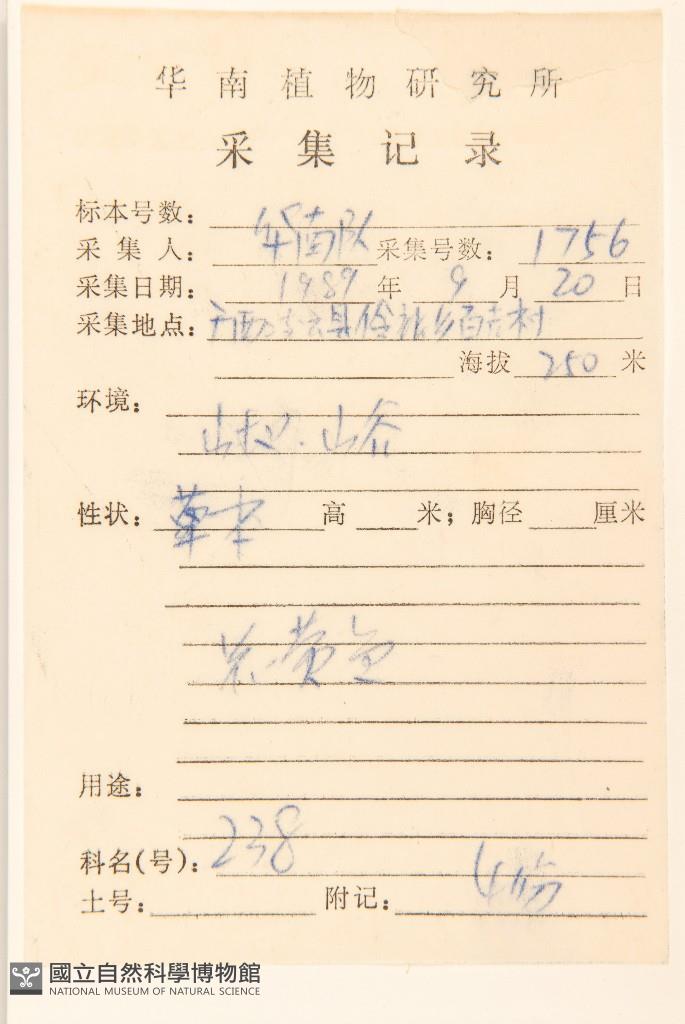 华南植物研究所
采集记录
标本号数：
采集人：华南队 采集号数：1756
采集日期：1989年9月20日
采集地点：广西 县 乡百吉村
海拔 250 米
环境：
山坡．山谷
性状：草本 高 米；胸径 厘米
黄色
用途：
科名(号)：238
土号： 附记：4份
國立自然科學博物館
NATIONAL MUSEUM OF NATURAL SCIENCE